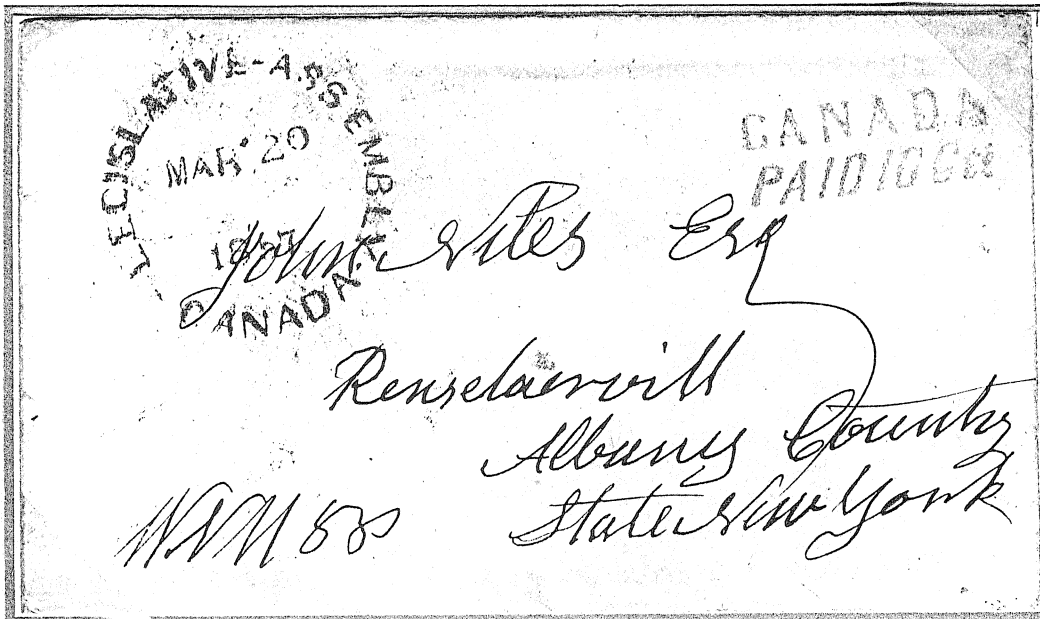 LEGISLATIVE-ASSEMBLY
MAR 20
1857
CANADA
CANADA
PAID 10 Cts
John Niles Esq
Renselaervill
Albany County
State New York